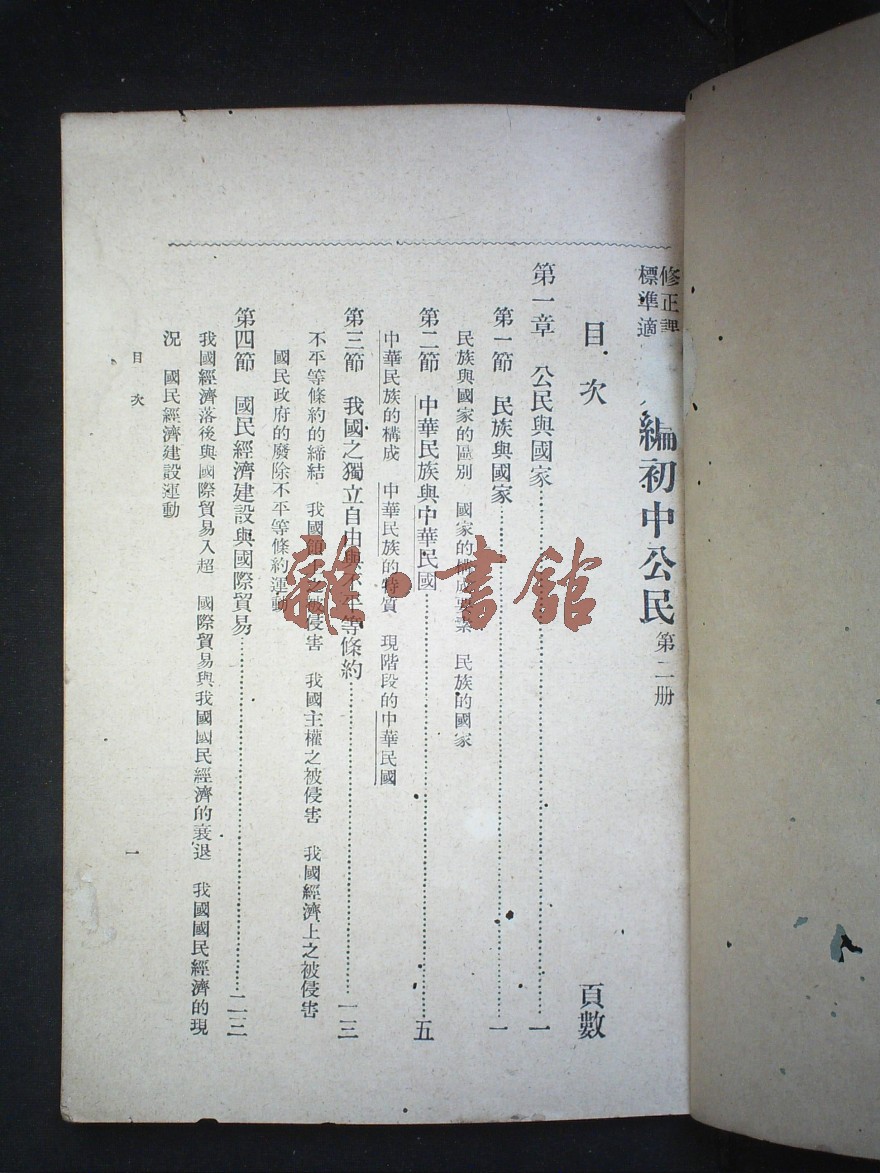 修正課
標準適
編初中公民 第二册
目次 頁數
第一章 公民與國家 一
第一節 民族與國家 一
民族與國家的區別 國家的構成要素 民族的國家
第二節 中華民族與中華民國 五
中華民族的構成 中華民族的特質 現階段的中華民國
第三節 我國之獨立自由與不平等條約 一三
不平等條約的締結 我國領土之被侵害 我國主權之被侵害 我國經濟上之被侵害
國民政府的廢除不平等條約運動
第四節 國民經濟建設與國際貿易 二三
我國經濟落後與國際貿易入超 國際貿易與我國國民經濟的衰退 我國國民經濟的現
況 國民經濟建設運動
目次
一
雜·書館